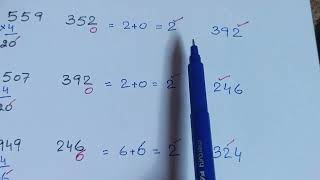 559 352 = 2+0 = 2 392
×4 0
20
507 392 = 2+0 = 2 246
4 0
20
949 246 = 6+6 = 2 324
4 6
6